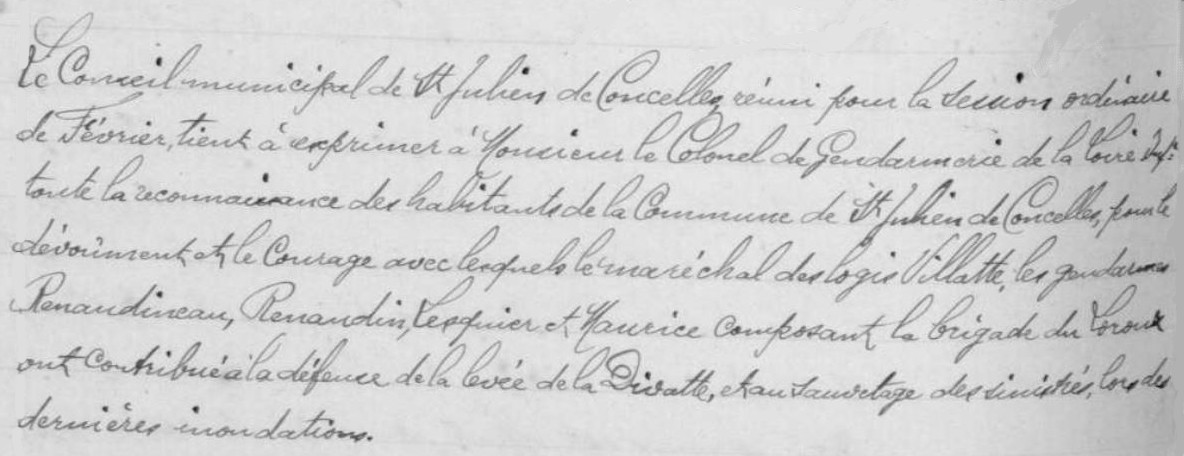 Le Conseil municipal de St Julien de Concelles, réuni pour la session ordinaire
de Février, tient à exprimer à Monsieur le Colonel de Gendarmerie de la Loire Infre
toute la reconnaissance des habitants de la Commune de St Julien de Concelles, pour le
dévoûment et le courage avec lesquels le maréchal des logis Villatte, les gendarmes
Renaudineau, Renaudin, Lesquier et Maurice composant la brigade du Loroux
ont contribué à la défense de la levée de la Divatte, et au sauvetage des sinistrés, lors des
dernières inondations.